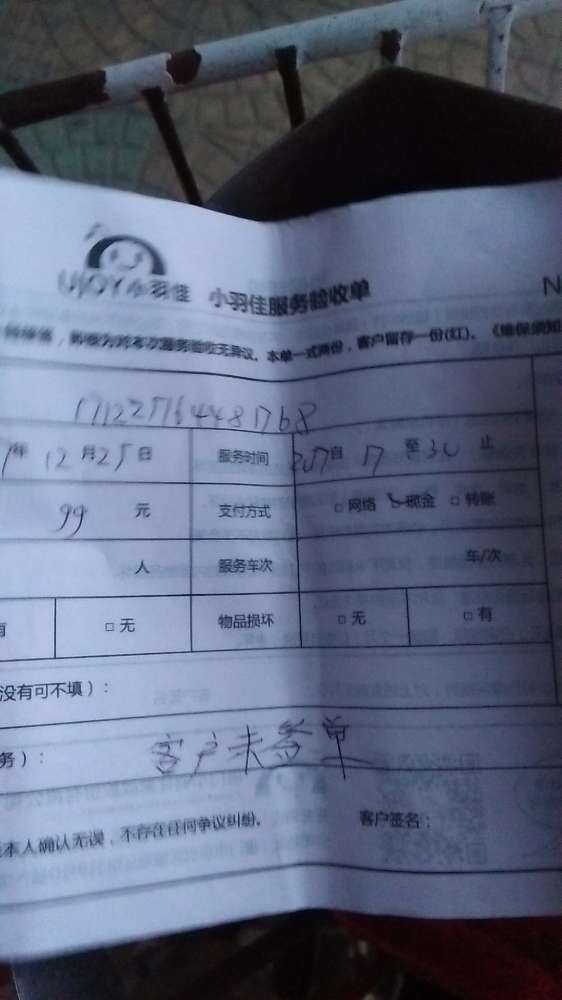 UJOY小羽佳 小羽佳服务验收单 N
即视为对本次服务验收无异议。本单一式两份，客户留存一份(红)。《维保须知
17122764481768
年 12 月 25 日 服务时间 自 17 至 30 止
99 元 支付方式 □ 网络 ☑ 现金 □ 转账
人 服务车次 车/次
有 □ 无 物品损坏 □ 无 □ 有
没有可不填）：
务）： 客户未签单
本人确认无误，不存在任何争议纠纷。 客户签名：